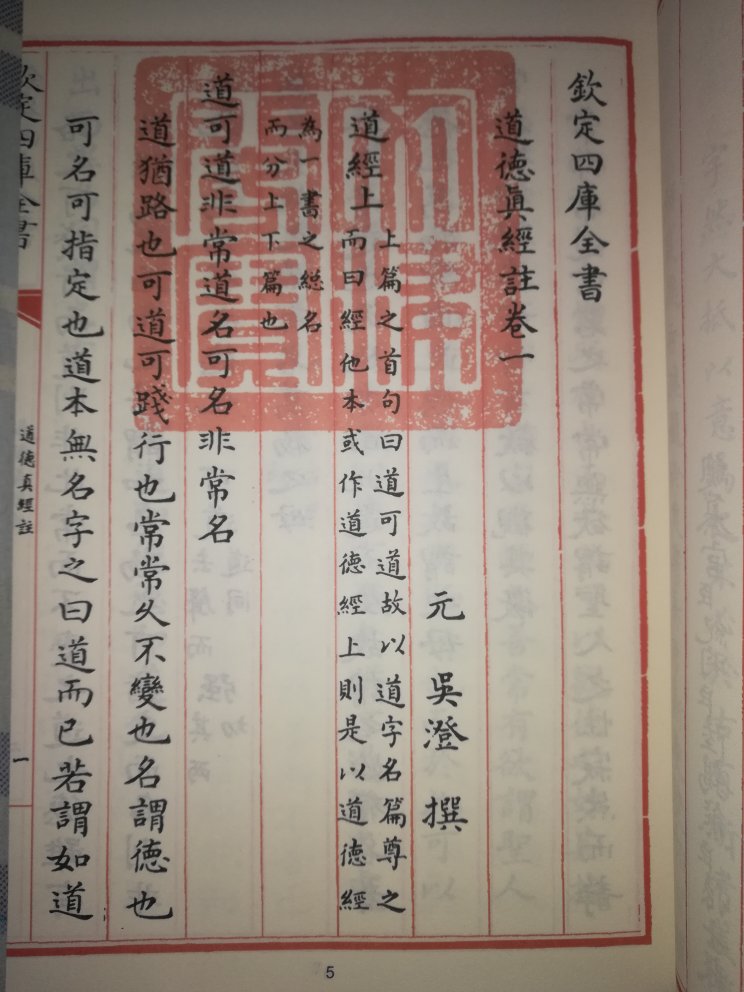 欽定四庫全書
道德眞經註卷一
元 吳澄 撰
道經上
上篇之首句曰道可道故以道字名篇尊之
而曰經他本或作道德經上則是以道德經
為一書之総名
而分上下篇也
道可道非常道名可名非常名
道猶路也可道可踐行也常常久不變也名謂德也
可名可指定也道本無名字之曰道而已若謂如道
欽定四庫全書
道德真經註
一
5